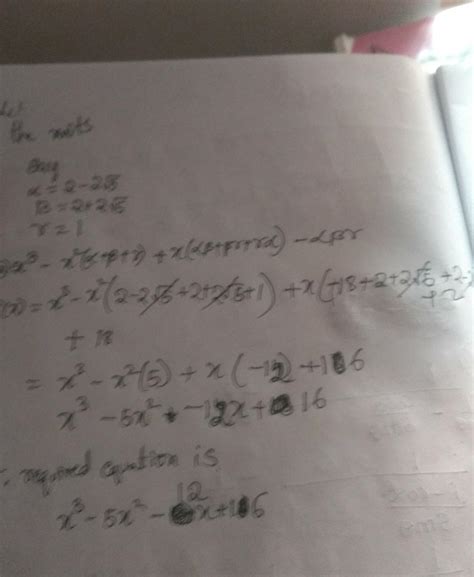 Let
the roots
say
α = 2 - 2√5
β = 2 + 2√5
γ = 1
x³ - x²(α+β+γ) + x(αβ+βγ+γα) - αβγ
(x) = x³ - x²(2-2√5+2+2√5+1) + x(-18+2+2√5+2-2
+2
+ 18
= x³ - x²(5) + x(-12) + 16
x³ - 5x² - 12x + 16
required equation is
x³ - 5x² - 12x + 16